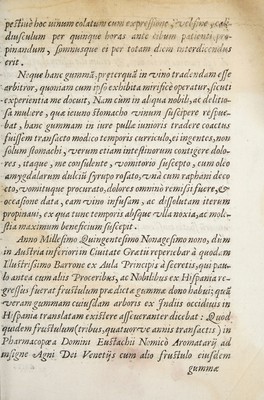 pestiuè hoc vinum colatum cum expressione, vel sine, cali
diusculum per quinque horas ante cibum patienti pro-
pinandum, somnusque ei per totam diem interdicendus
erit.
Neque hanc gummã, præterquã in vino tradendam esse
arbitror, quoniam cum ipso exhibita mirificè operatur, sicuti
experientia me docuit, Nam cùm in aliqua nobili, ac delitio-
sa muliere, quæ ieiuno stomacho vinum suscipere respue-
bat, hanc gummam in iure pulli iunioris tradere coactus
fuissem transacto modico temporis curriculo, ei ingentes, non
solùm stomachi, verum etiam intestinorum contigere dolo-
res, itaque, me consulente, vomitorio suscepto, cum oleo
amygdalarum dulciũ syrupo rosato, vnà cum raphani deco
cto, vomituque procurato, dolores omninò remisit fuere, &
occasione data, eam vino infusam, ac dissolutam iterum
propinaui, ex qua tunc temporis absque vlla noxia, ac mole-
stia maximum beneficium suscepit.
Anno Millesimo Quingentesimo Nonagesimo nono, dum
in Austria inferiori in Ciuitate Gratij reperiebar à quodam
Illustrissimo Barrone ex Aula Principis à secretis, qui pau-
lò antea cum alijs Proceribus, ac Nobilibus ex Hispania re-
gressus fuerat frustulum prædictæ gummæ dono habui; quã
veram gummam cuiusdam arboris ex Indiis occiduis in
Hispania translatam existere asseueranter dicebat: Quod
quidem frustulum (tribus, quatuorve annis transactis) in
Pharmacopæa Domini Eustachii Nomicò Aromatarij ad
insigne Agni Dei Venetijs cum alio frustulo eiusdem
gummæ